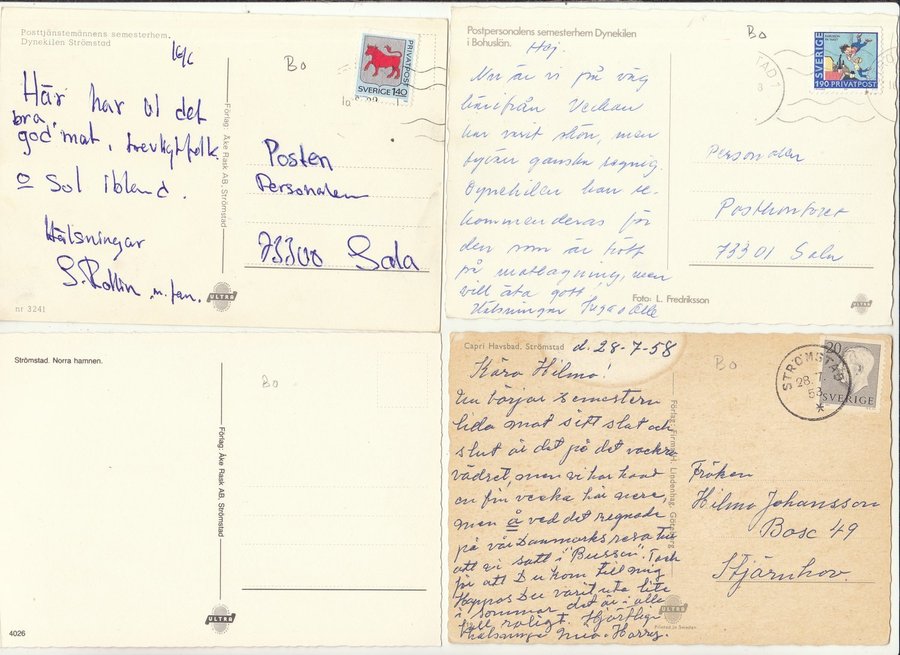 Posttjänstemännens semesterhem.
Dynekilen Strömstad
16/6
Bo
PRIVATPOST
SVERIGE 140
Här har vi det
bra,
god mat, trevligt folk
o Sol ibland.
Hälsningar
S. Rollin m. fam.
Förlag: Åke Rask AB, Strömstad
Posten
Personalen
73300 Sala
nr 3241
ULTRA
Postpersonalens semesterhem Dynekilen
i Bohuslän.
Hej.
Bo
SVERIGE
190 PRIVATPOST
Nu är vi på väg
hemifrån Veckan
har varit skön, men
tyvärr ganska regnig.
Dynekilen kan re-
kommenderas för
den som är trött
på matlagning, men
vill äta gott
Hälsningar Inga o Olle
Personalen
Postkontoret
73301 Sala
Foto: L. Fredriksson
ULTRA
Strömstad. Norra hamnen.
Bo
Förlag: Åke Rask AB, Strömstad
4026
ULTRA
Capri Havsbad. Strömstad
d. 28-7-58
Bo
STRÖMSTAD
28.7.
58
20
SVERIGE
Kära Hilma!
Nu börjar semestern
lida mot sitt slut och
slut är det på det vackra
vädret, men vi har haft
en fin vecka här nere,
men å ved det regnade
på vår Danmarksresa
att vi satt i "Bussen". Tack
för att Du kom till mig
Hoppas Du varit ute lite
i sommar det är i alla
fall roligt. Hjärtliga
Hälsningar Harry.
Förlag: Firma H. Lindenhag, Göteborg
Fröken
Hilma Johansson
Box 49
Stjärnhov.
ULTRA
Printed in Sweden